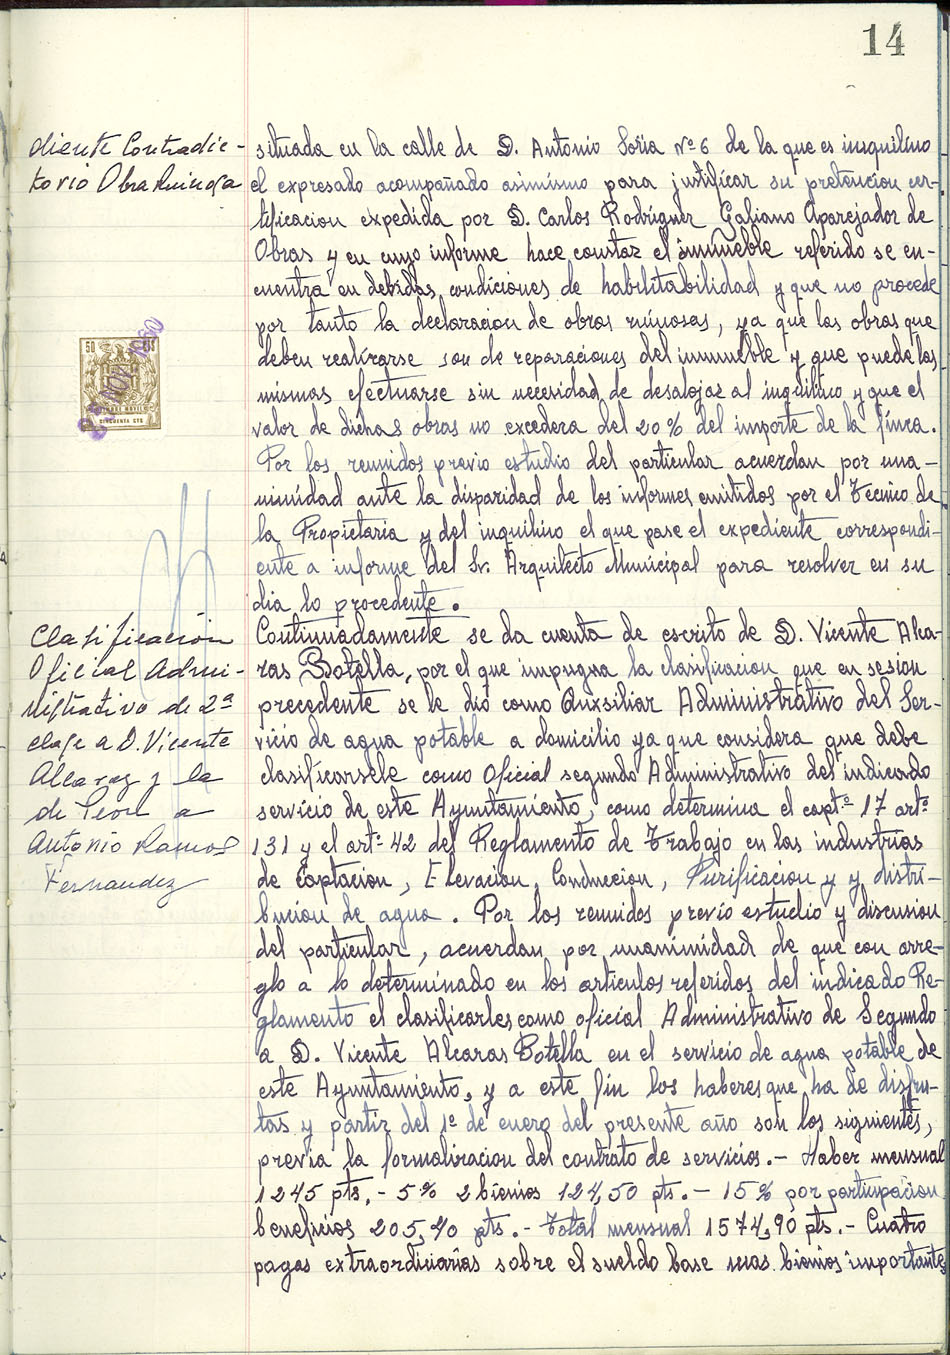 14
diente Contradic-
torio Obra Ruinosa
situada en la calle de D. Antonio Soria Nº 6 de la que es insquilino
el expresado acompañado asimismo para justificar su pretencion cer-
tificacion expedida por D. Carlos Rodriguer Galiano Aparejador de
Obras y en cuyo informe hace constar el inmueble referido se en-
cuentra en debidas condiciones de habilitabilidad y que no procede
por tanto la declaracion de obras ruinosas, ya que las obras que
deben realizarse son de reparaciones del inmueble y que puede las
mismas efectuarse sin necesidad de desalojar al inquilino y que el
valor de dichas obras no excedera del 20% del importe de la finca.
Por los reunidos previo estudio del particular acuerdan por una-
nimidad ante la disparidad de los informes emitidos por el Tecnico de
la Propietaria y del inquilino el que pase el expediente correspondi-
ente a informe del Sr. Arquitecto Municipal para resolver en su
dia lo procedente.
50 CTS
CINCUENTA CTS
Clasificación
Oficial Admi-
nistrativo de 2ª
clase a D. Vicente
Alcaraz y la
de Peon a
Antonio Ramos
Fernandez
Continuadamente se da cuenta de escrito de D. Vicente Alca-
ras Botella, por el que impugna la clasificacion que en sesion
precedente se le dió como Auxsiliar Administrativo del Ser-
vicio de agua potable a domicilio ya que considera que debe
clasificarsele como Oficial segundo Administrativo del indicado
servicio de este Ayuntamiento, como determina el capt.º 17 art.º
131 y el artº 42 del Reglamento de Trabajo en las industrias
de Captacion, Elevacion, Conduccion, Purificacion y y distri-
bucion de agua. Por los reunidos previo estudio y discusion
del particular, acuerdan por unanimidad de que con arre-
glo a lo determinado en los articulos referidos del indicado Re-
glamento el clasificarles como oficial Administrativo de Segundo
a D. Vicente Alcaras Botella en el servicio de agua potable de
este Ayuntamiento, y a este fin los haberes que ha de disfru-
tas y partir del 1º de enero del presente año son los siguientes,
previa la formaliracion del contrato de servicios.- Haber mensual
1245 pts.- 5% 2 bienios 124,50 pts.- 15% por participacion
beneficios 205,40 pts.- Total mensual 1574,90 pts.- Cuatro
pagas extraordinarias sobre el sueldo base mas bienios importante